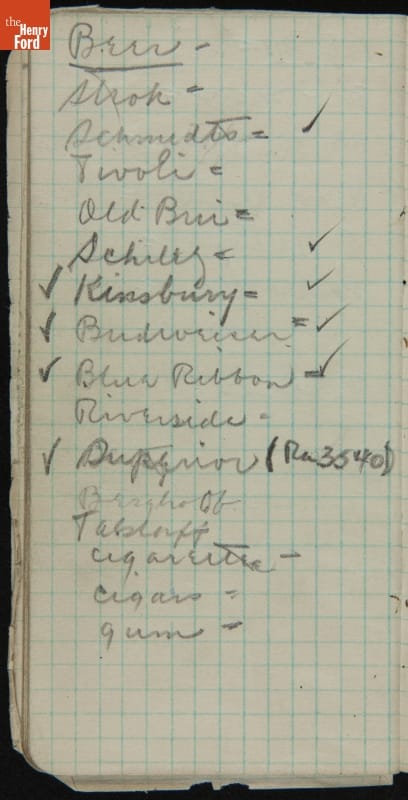 the
Henry
Ford
Beer -
Stroh =
Schmidts = ✓
Tivoli =
Old Bru =
Schiltz = ✓
✓ Kinsbury = ✓
✓ Budweiser = ✓
✓ Blue Ribbon = ✓
Riverside -
✓ Superior (Ra 3540)
Berghoff
Falstaff
cigarettes -
cigars =
gum =